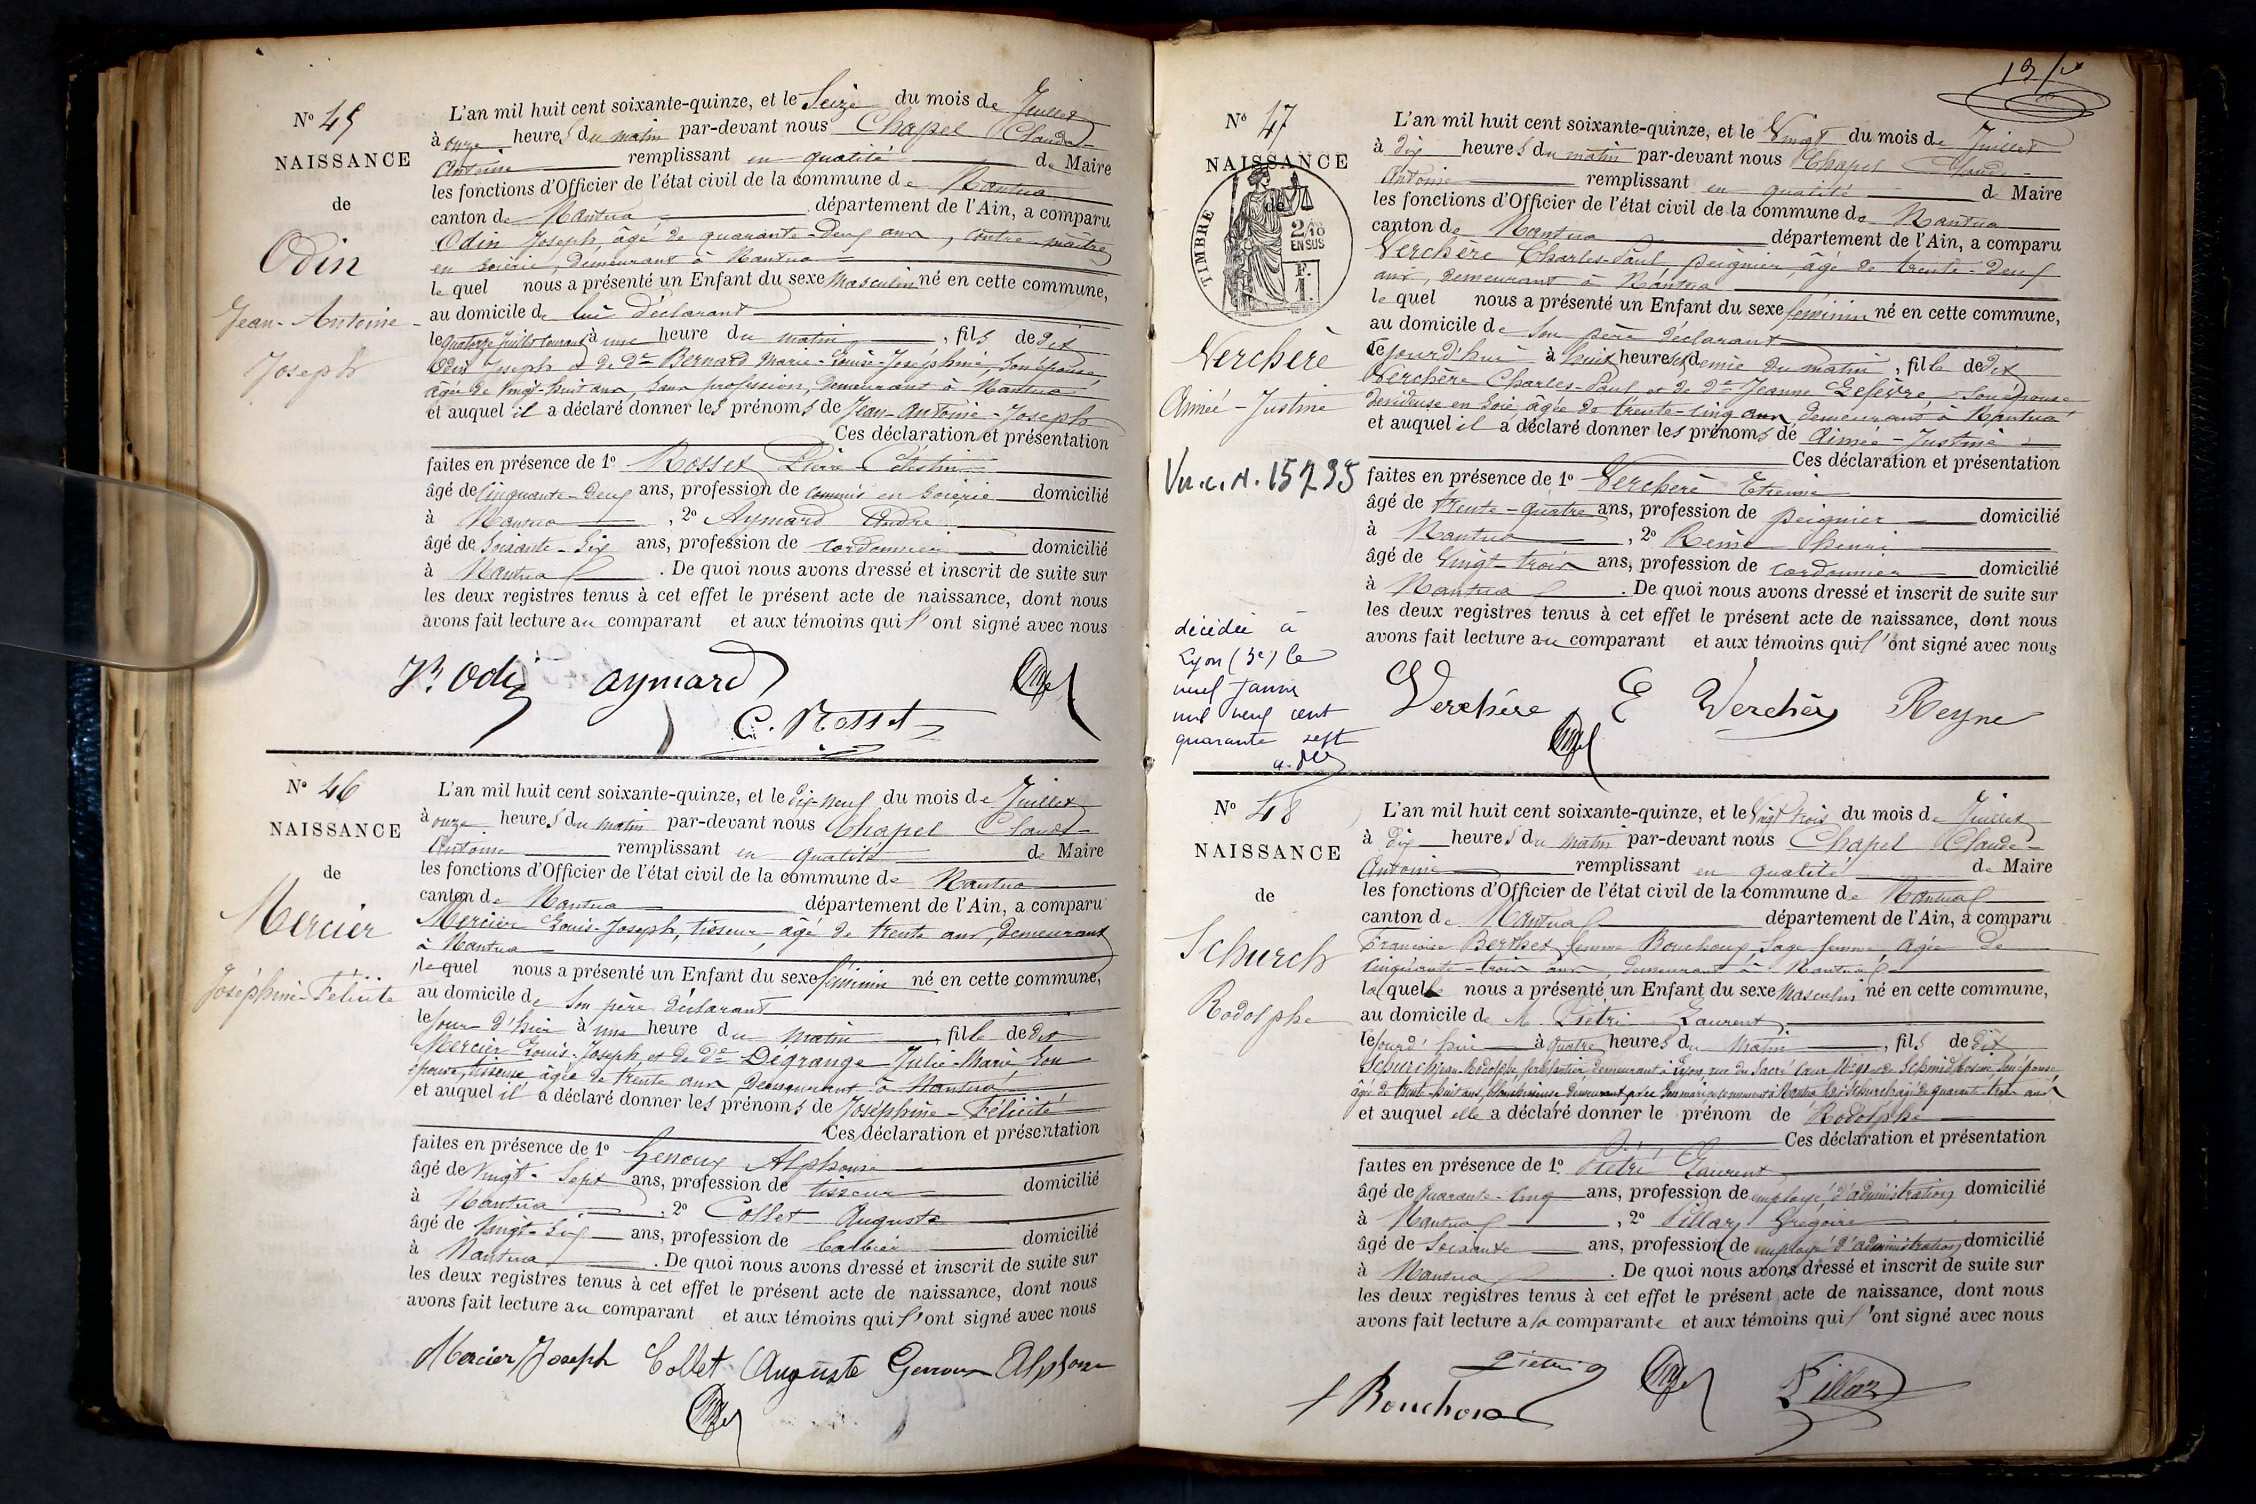 N° 45
NAISSANCE
de
Odin
Jean-Antoine
Joseph
L'an mil huit cent soixante-quinze, et le Seize du mois de Juillet
à onze heures du matin par-devant nous Chapel Claude
Antoine remplissant en qualité de Maire
les fonctions d'Officier de l'état civil de la commune de Nantua
canton de Nantua département de l'Ain, a comparu
Odin Joseph, âgé de quarante-deux ans, contre-maître
en soierie, demeurant à Nantua
lequel nous a présenté un Enfant du sexe Masculin né en cette commune,
au domicile de lui déclarant
le quatorze juillet courant à une heure du matin, fils de dit
Odin Joseph et de De Bernard Marie-Louise-Joséphine, son épouse,
âgée de vingt-huit ans, sans profession, demeurant à Nantua
et auquel il a déclaré donner les prénoms de Jean-Antoine-Joseph
Ces déclaration et présentation
faites en présence de 1° Rosset Pierre Célestin
âgé de Cinquante-deux ans, profession de commis en soierie domicilié
à Nantua, 2° Aymard André
âgé de soixante-six ans, profession de cordonnier domicilié
à Nantua. De quoi nous avons dressé et inscrit de suite sur
les deux registres tenus à cet effet le présent acte de naissance, dont nous
avons fait lecture au comparant et aux témoins qui l'ont signé avec nous
Jh Odin Aymard
C. Rosset
N° 46
NAISSANCE
de
Mercier
Joséphine-Félicité
L'an mil huit cent soixante-quinze, et le dix-neuf du mois de Juillet
à onze heures du matin par-devant nous Chapel Claude
Antoine remplissant en qualité de Maire
les fonctions d'Officier de l'état civil de la commune de Nantua
canton de Nantua département de l'Ain, a comparu
Mercier Louis-Joseph, tisseur, âgé de trente ans, demeurant
à Nantua
lequel nous a présenté un Enfant du sexe féminin né en cette commune,
au domicile de son père déclarant
le jour d'hier à une heure du matin, fille de dit
Mercier Louis-Joseph et de de Dégrange Julie-Marie son
épouse, tisseuse âgée de trente ans, demeurant à Nantua
et auquel il a déclaré donner les prénoms de Joséphine-Félicité
Ces déclaration et présentation
faites en présence de 1° Genoux Alphonse
âgé de vingt-sept ans, profession de tisseur domicilié
à Nantua, 2° Collet Auguste
âgé de vingt-six ans, profession de domicilié
à Nantua. De quoi nous avons dressé et inscrit de suite sur
les deux registres tenus à cet effet le présent acte de naissance, dont nous
avons fait lecture au comparant et aux témoins qui l'ont signé avec nous
Mercier Joseph Collet Auguste Genoux Alphonse
19
N° 47
NAISSANCE
de
TIMBRE
2/10
EN SUS
F.
1.
Verchère
Aimée-Justine
15795
décédée à
Lyon (3e) le
neuf janvier
mil neuf cent
quarante sept
L'an mil huit cent soixante-quinze, et le Vingt du mois de Juillet
à dix heures du matin par-devant nous Chapel Claude
Antoine remplissant en qualité de Maire
les fonctions d'Officier de l'état civil de la commune de Nantua
canton de Nantua département de l'Ain, a comparu
Verchère Charles-Paul, peignier, âgé de trente-deux
ans, demeurant à Nantua
lequel nous a présenté un Enfant du sexe féminin né en cette commune,
au domicile de son père déclarant
cejourd'hui à huit heures et demie du matin, fille de dit
Verchère Charles-Paul et de de Jeanne Lefèvre, son épouse
dévideuse en soie, âgée de trente-cinq ans demeurant à Nantua
et auquel il a déclaré donner les prénoms de Aimée-Justine
Ces déclaration et présentation
faites en présence de 1° Verchère Etienne
âgé de trente-quatre ans, profession de peignier domicilié
à Nantua, 2° Reine henri
âgé de vingt-trois ans, profession de cordonnier domicilié
à Nantua. De quoi nous avons dressé et inscrit de suite sur
les deux registres tenus à cet effet le présent acte de naissance, dont nous
avons fait lecture au comparant et aux témoins qui l'ont signé avec nous
Verchère E Verchère Reyne
N° 48
NAISSANCE
de
Schurch
Rodolphe
L'an mil huit cent soixante-quinze, et le vingt trois du mois de Juillet
à dix heures du matin par-devant nous Chapel Claude
Antoine remplissant en qualité de Maire
les fonctions d'Officier de l'état civil de la commune de Nantua
canton de Nantua département de l'Ain, a comparu
Françoise Berthet femme Bouchoux, sage-femme, âgée de
cinquante-trois ans, demeurant à Nantua
laquelle nous a présenté un Enfant du sexe Masculin né en cette commune,
au domicile de M. Piétri Laurent
cejourd'hui à quatre heures du matin, fils de dit
Schurch Jean Rodolphe, ferblantier, demeurant à Lyon, rue du Sacré Cœur N° 91 et de Schmid Rosine, son épouse
âgée de trente-huit ans, blanchisseuse demeurant avec son mari et en ce moment à Nantua, Schurch âgé de quarante-trois ans
et auquel elle a déclaré donner le prénom de Rodolphe
Ces déclaration et présentation
faites en présence de 1° Piétri Laurent
âgé de quarante-cinq ans, profession de employé d'administration domicilié
à Nantua, 2° Pillard Grégoire
âgé de soixante ans, profession de employé d'administration domicilié
à Nantua. De quoi nous avons dressé et inscrit de suite sur
les deux registres tenus à cet effet le présent acte de naissance, dont nous
avons fait lecture a la comparante et aux témoins qui l'ont signé avec nous
Piétri
f Bouchoux Pillard